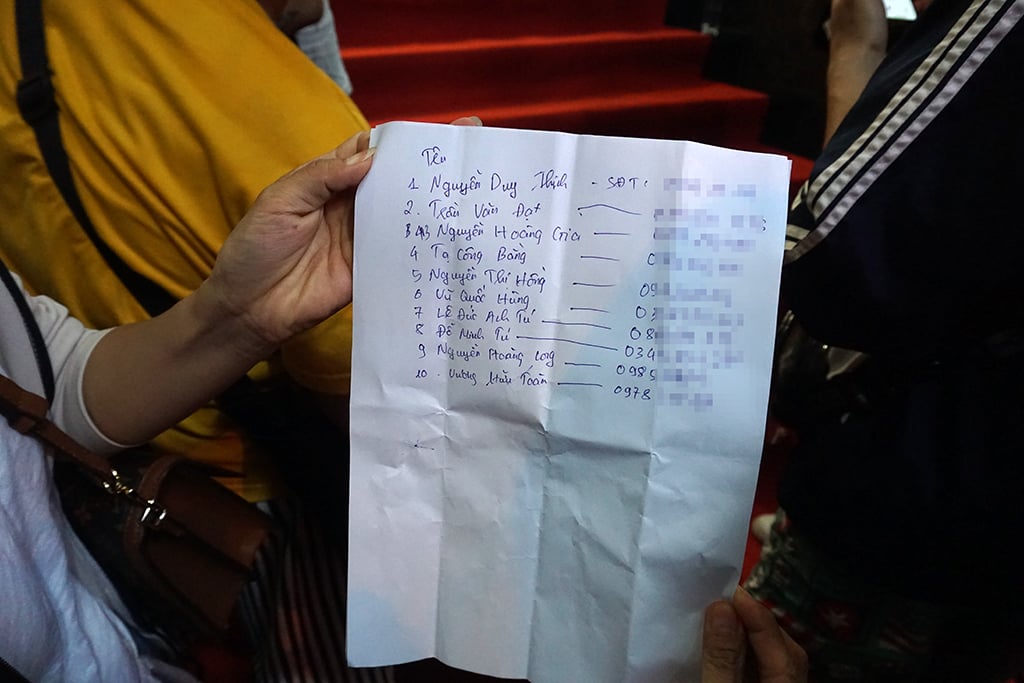 Tên
1 Nguyễn Duy Thịnh - SĐT:
2. Trần Văn Đạt
3 Nguyễn Hoàng Gia
4 Tạ Công Bằng 0
5 Nguyễn Thị Hồng 09
6 Vũ Quốc Hùng 03
7 Lê Đức Anh Tú 08
8 Đỗ Minh Tú 034
9 Nguyễn Hoàng Long 0985
10. Vương Toàn 0978